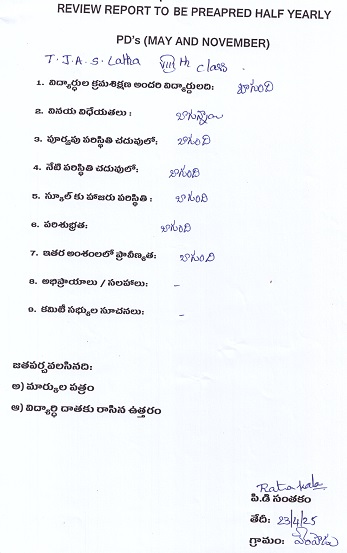 REVIEW REPORT TO BE PREAPRED HALF YEARLY
PD's (MAY AND NOVEMBER)
T.J.A.S. Latha VIII th class
1. విద్యార్థుల క్రమశిక్షణ అందరి విద్యార్థులది: బాగుంది
2. వినయ విధేయతలు : బాగున్నాయి
3. పూర్వపు పరిస్థితి చదువులో: బాగుంది
4. నేటి పరిస్థితి చదువులో: బాగుంది
5. స్కూల్ కు హాజరు పరిస్థితి : బాగుంది
6. పరిశుభ్రత: బాగుంది
7. ఇతర అంశంలలో ప్రావీణ్యత: బాగుంది
8. అభిప్రాయాలు / సలహాలు: -
9. కమిటీ సభ్యుల సూచనలు: -
జతపర్చవలసినది:
అ) మార్కుల పత్రం
ఆ) విద్యార్థి దాతకు రాసిన ఉత్తరం
పి.డి సంతకం
తేదీ: 23/4/25
గ్రామం: